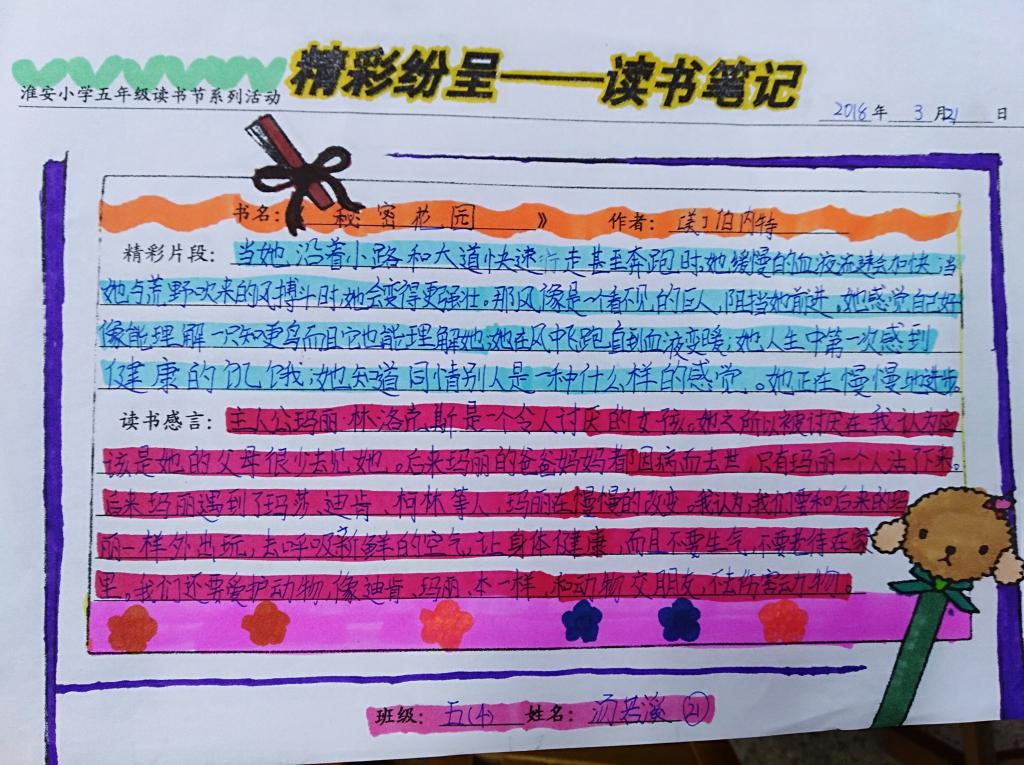 精彩纷呈——读书笔记
淮安小学五年级读书节系列活动
2018年 3月21日
书名：《秘密花园》 作者：[美]伯内特
精彩片段：当她沿着小路和大道快速行走甚至奔跑时,她缓慢的血液流速会加快,当
她与荒野吹来的风搏斗时,她会变得更强壮。那风像是一个看不见的巨人,阻挡她前进。她感觉自己好
像能理解一只知更鸟而且它也能理解她;她在风中飞跑直到血液变暖;她人生中第一次感到
健康的饥饿;她知道同情别人是一种什么样的感觉。她正在慢慢地进步。
读书感言：主人公玛丽·林·洛克斯是一个令人讨厌的女孩。她之所以被讨厌在我认为应
该是她的父母很少去见她。后来玛丽的爸爸妈妈都因病而去世,只有玛丽一个人活下来。
后来玛丽遇到了玛莎、迪肯、柯林等人,玛丽在慢慢的改变。我认为,我们要和后来的玛
丽一样外出玩,去呼吸新鲜的空气,让身体健康,而且不要生气,不要老待在家
里。我们还要爱护动物,像迪肯、玛丽、本一样,和动物交朋友,不去伤害动物。
班级：五(4) 姓名：汤若溪 ㉑